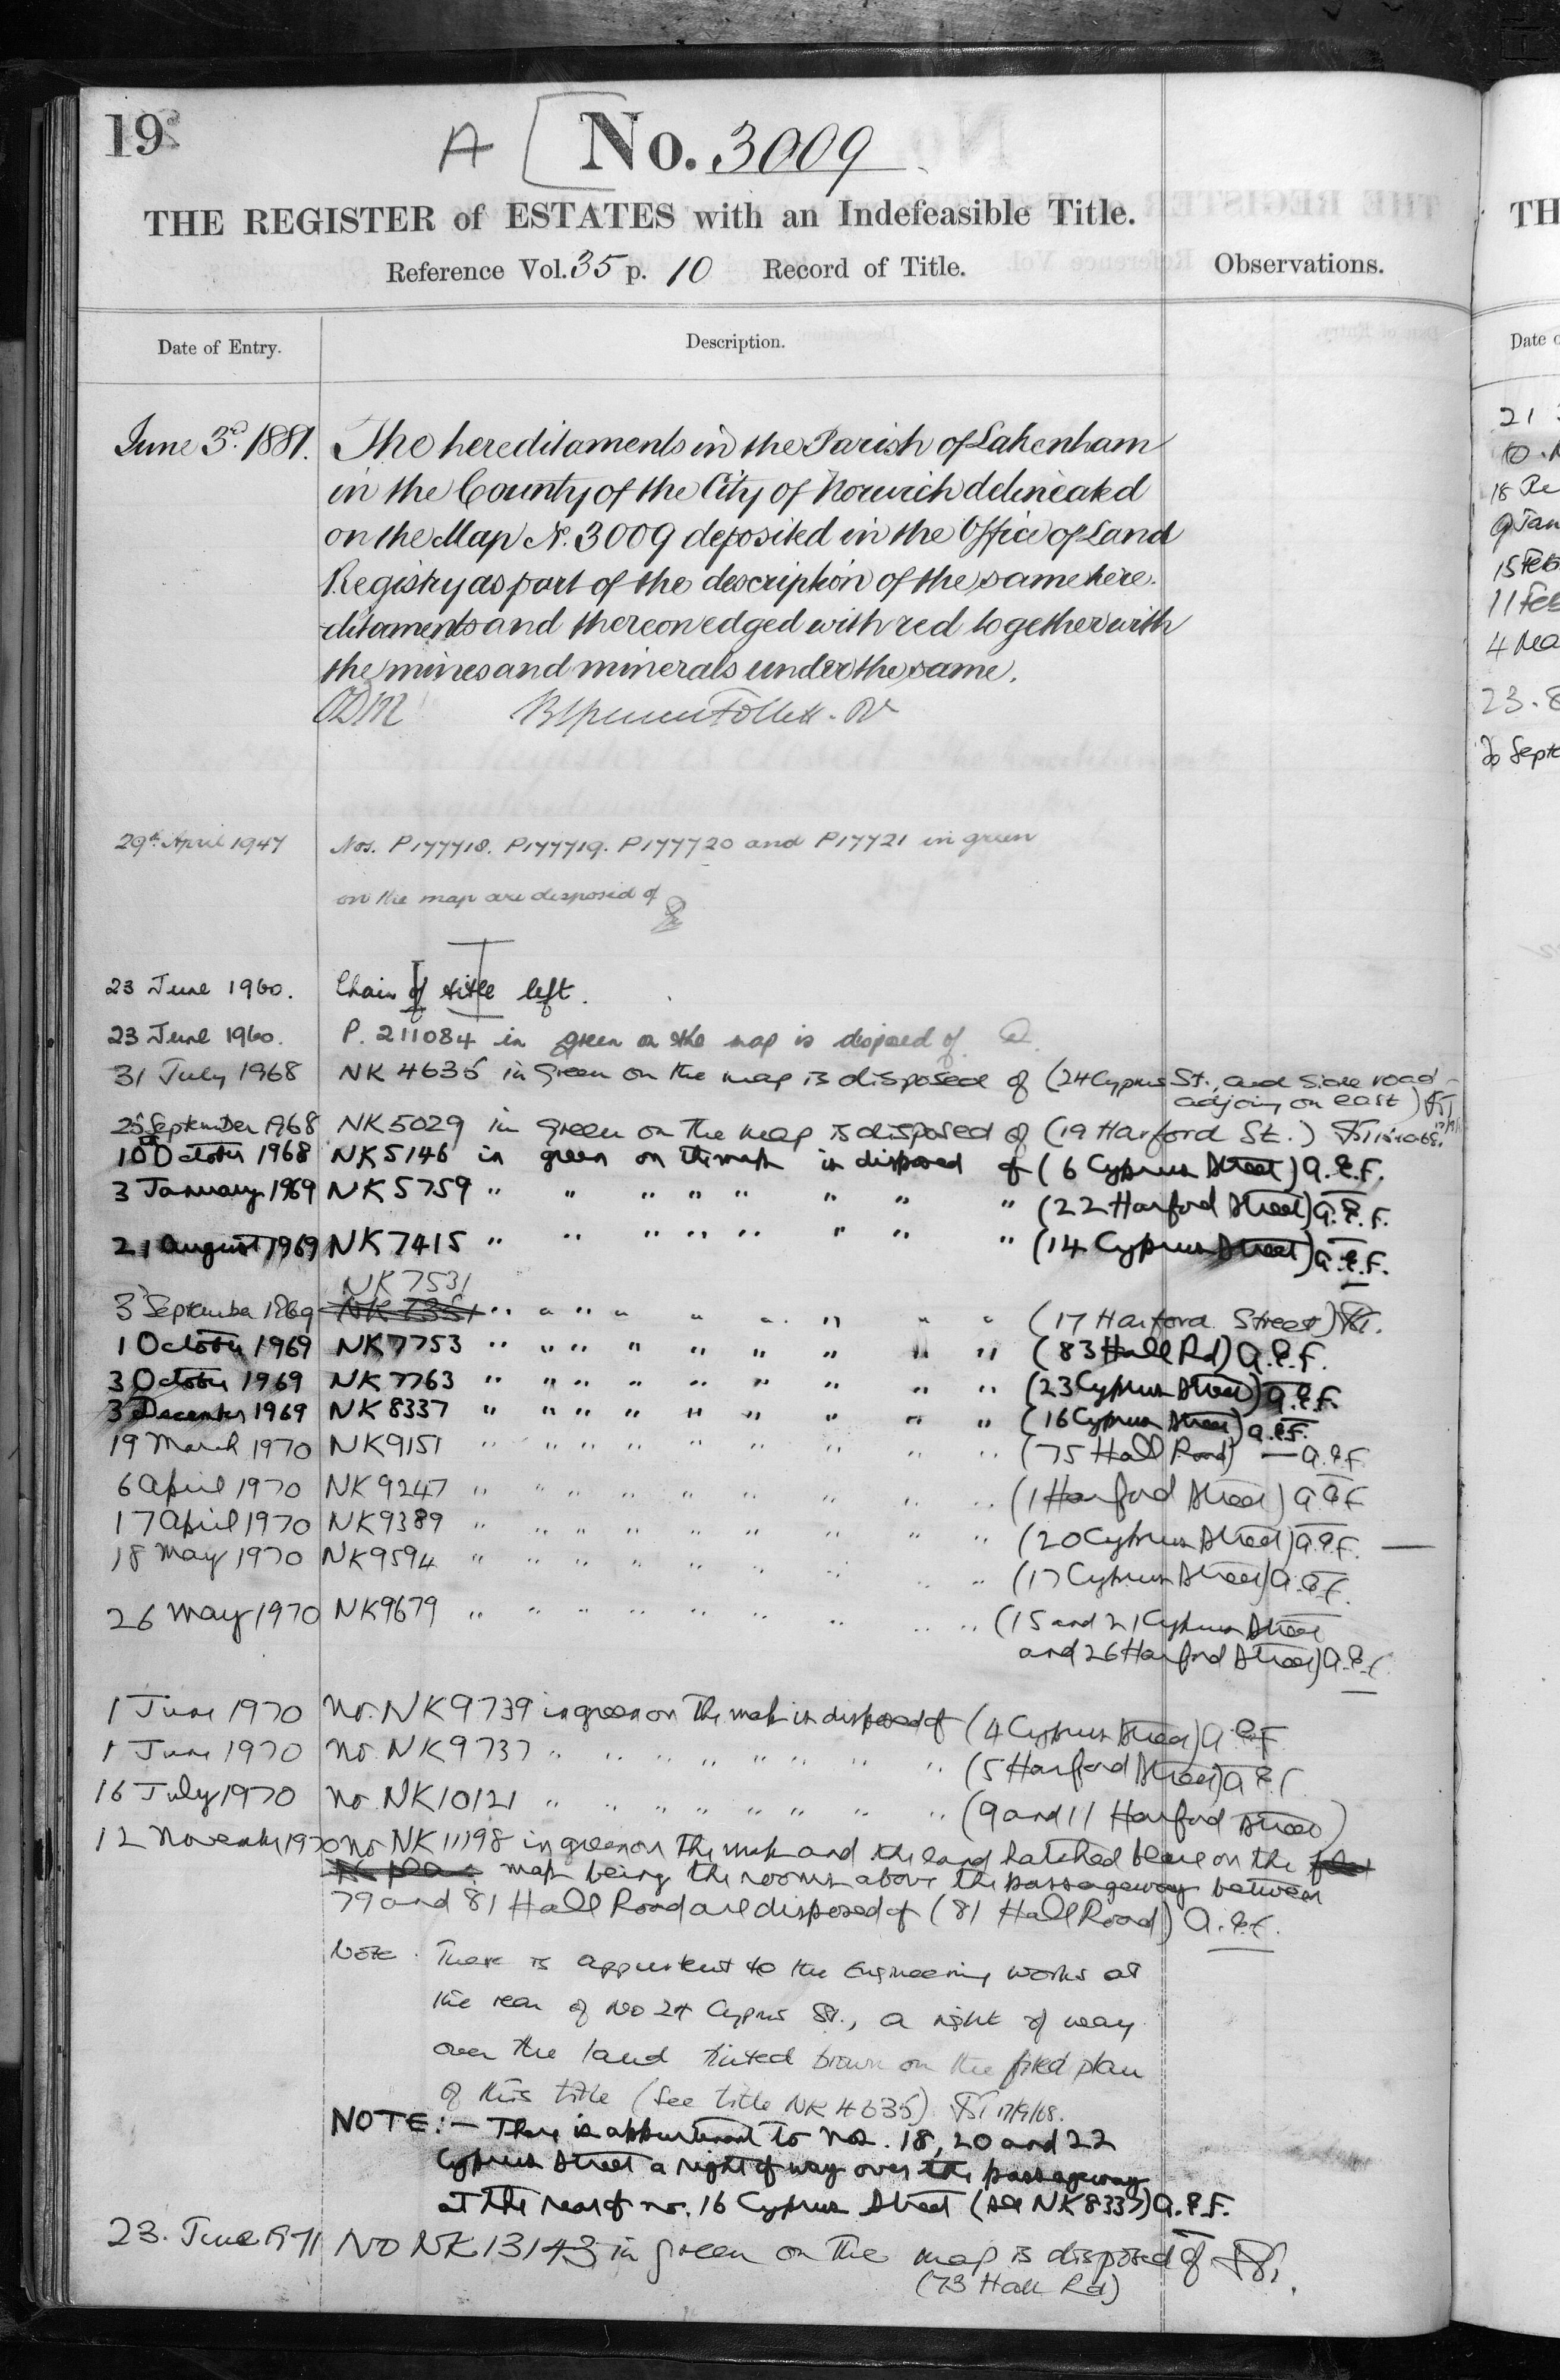 19
A [No. 3009
THE REGISTER of ESTATES with an Indefeasible Title.
Reference Vol. 35 p. 10 Record of Title.
Observations.
Date of Entry.
Description.
June 3d. 1881. The hereditaments in the Parish of Lakenham
in the County of the City of Norwich delineated
on the Map No. 3009 deposited in the Office of Land
Registry as part of the description of the same here-
ditaments and thereon edged with red together with
the mines and minerals under the same.
29th April 1947 Nos. P177718. P177719. P177720 and P17721 in green
on the map are disposed of
23 June 1960. Chain of title left.
23 June 1960. P. 211084 in green on the map is disposed of
31 July 1968 NK 4635 in Green on the map is disposed of (24 Cyprus St., and side road
adjoing on east)
25 September 1968 NK 5029 in Green on the map is disposed of (19 Harford St.)
10 October 1968 NK 5146 in green on the map is disposed of (6 Cyprus Street) A.E.F.
3 January 1969 NK 5759 " " " " " " " " (22 Harford Street) A.E.F.
21 August 1969 NK 7415 " " " " " " " " (14 Cyprus Street) A.E.F.
NK 7531
3 September 1969 NK 7351 " " " " " " " " " (17 Harford Street)
1 October 1969 NK 7753 " " " " " " " " " (83 Hall Rd) A.E.F.
3 October 1969 NK 7763 " " " " " " " " " (23 Cyprus Street) A.E.F.
3 December 1969 NK 8337 " " " " " " " " " (16 Cyprus Street) A.E.F.
19 March 1970 NK 9151 " " " " " " " " " (75 Hall Road) — A.E.F.
6 April 1970 NK 9247 " " " " " " " " " (1 Harford Street) A.E.F.
17 April 1970 NK 9389 " " " " " " " " " (20 Cyprus Street) A.E.F. —
18 May 1970 NK 9594 " " " " " " " " " (17 Cyprus Street) A.E.F.
26 May 1970 NK 9679 " " " " " " " " " (15 and 21 Cyprus Street
and 26 Harford Street) A.E.F.
1 June 1970 No. NK 9739 in green on the map is disposed of (4 Cyprus Street) A.E.F.
1 June 1970 No. NK 9737 " " " " " " " " (5 Harford Street) A.E.F.
16 July 1970 No. NK 10121 " " " " " " " " (9 and 11 Harford Street)
12 November 1970 No. NK 11198 in green on the map and the land hatched blue on the filed
plan map being the rooms above the passageway between
79 and 81 Hall Road are disposed of (81 Hall Road) A.E.F.
Note. There is appurtent to the Engineering works at
the rear of No 24 Cyprus St., a right of way
over the land tinted brown on the filed plan
of this title (See title NK 4635) 17/9/68.
NOTE:— There is appurtenant to nos. 18, 20 and 22
Cyprus Street a right of way over the passageway
at the rear of no. 16 Cyprus Street (see NK 8337) A.E.F.
23. June 1971 NO NK 13143 in green on the map is disposed of
(73 Hall Rd)
TH
Date
21
18
9 Jan
15 Feb
11 Feb
4 Ma
23.8